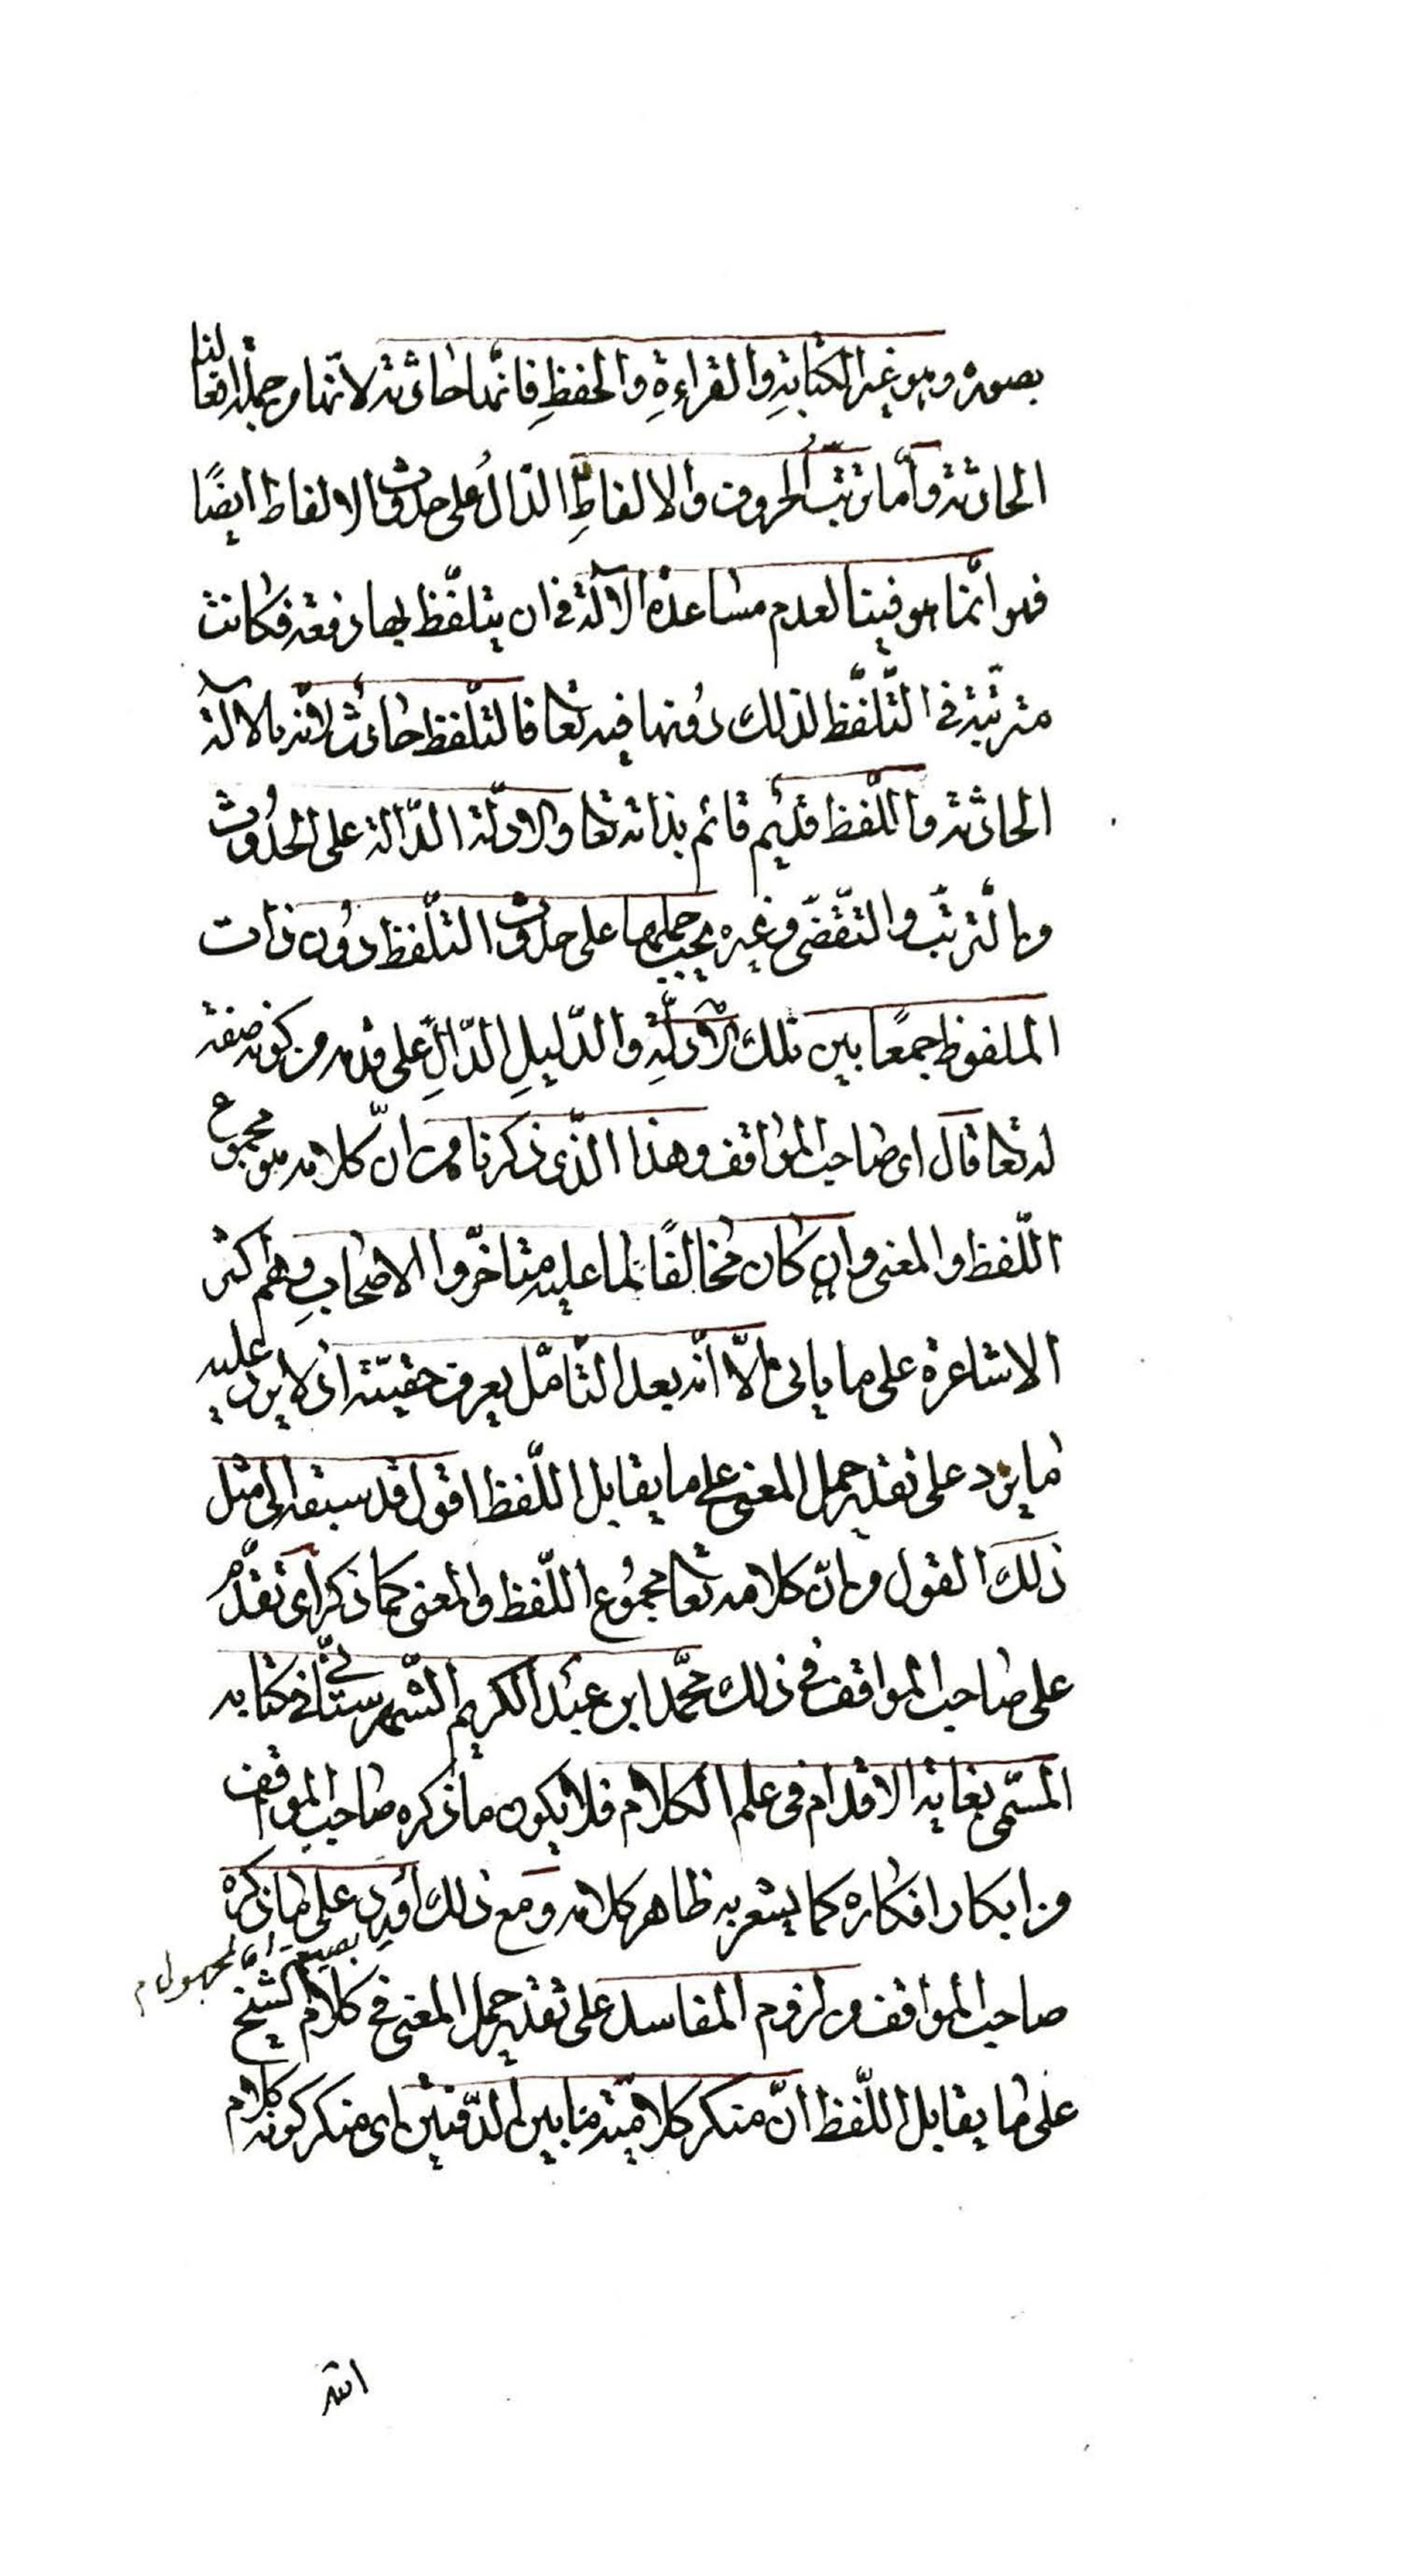 بصوره وهو غير الكتابةِ والقراءةِ والحفظِ فانّها حادثة لانّها من جملة افعالنا
الحادثة وأما ترتّبُ الحروف والالفاظِ الدّالُ على حدوث الالفاظ ايضًا
فهو انّما هو فينا لعدم مساعدة الآلة في ان يتلفّظ بها دفعة فكانت
مترتّبة في التّلفّظ لذلك دونها فيه تعا فالتلفّظ حادث لانّه بالآلة
الحادثة واللّفظ قديم قائم بذاته تعا والادلّة الدّالة على الحدُوث
والترتّب والتّقضّى وغيره يجب حملها على حدوث التلّفظ دوُن ذات
الملفوظ جمعًا بين تلك الأدلّةِ والدّليلِ الدّالِّ على قدمه من كونه صفة
له تعا قال اى صاحب المواقف وهذا الّذى ذكرنا من انّ كلامه هو مجموع
اللّفظ والمعنى وان كان مخالفًا لما عليه متاخّروا الاصحابِ وهم اكثر
الاشاعرة على ما ياتى الاّ انّه بعد التّامّل يعرف حقيّته اذ لا يرد عليه
ما يرد على تقدير حمل المعنى على ما يقابل اللّفظ اقول قد سبقه الى مثل
ذلك القول وبانّ كلامه تعا مجمُوع اللّفظ والمعنى كما ذكر اى تقدّم
على صاحب المواقف في ذلك محمّد ابن عبد الكريم الشّهرستانّي في كتابه
المسّمى بغاية الاقدام في علم الكلام فلا يكون ما ذكره صاحب المواقف
من ابكار افكاره كما يشعر به ظاهر كلامه ومع ذلك اُورِد على ما ذكره
المجهول م
صاحب المواقف من لزوم المفاسد على تقدير حمل المعنى في كلام الشّيخ
على ما يقابل اللّفظ انّ منكر كلاميّة ما بين الدّفتين اى منكر كونه كلام
الله